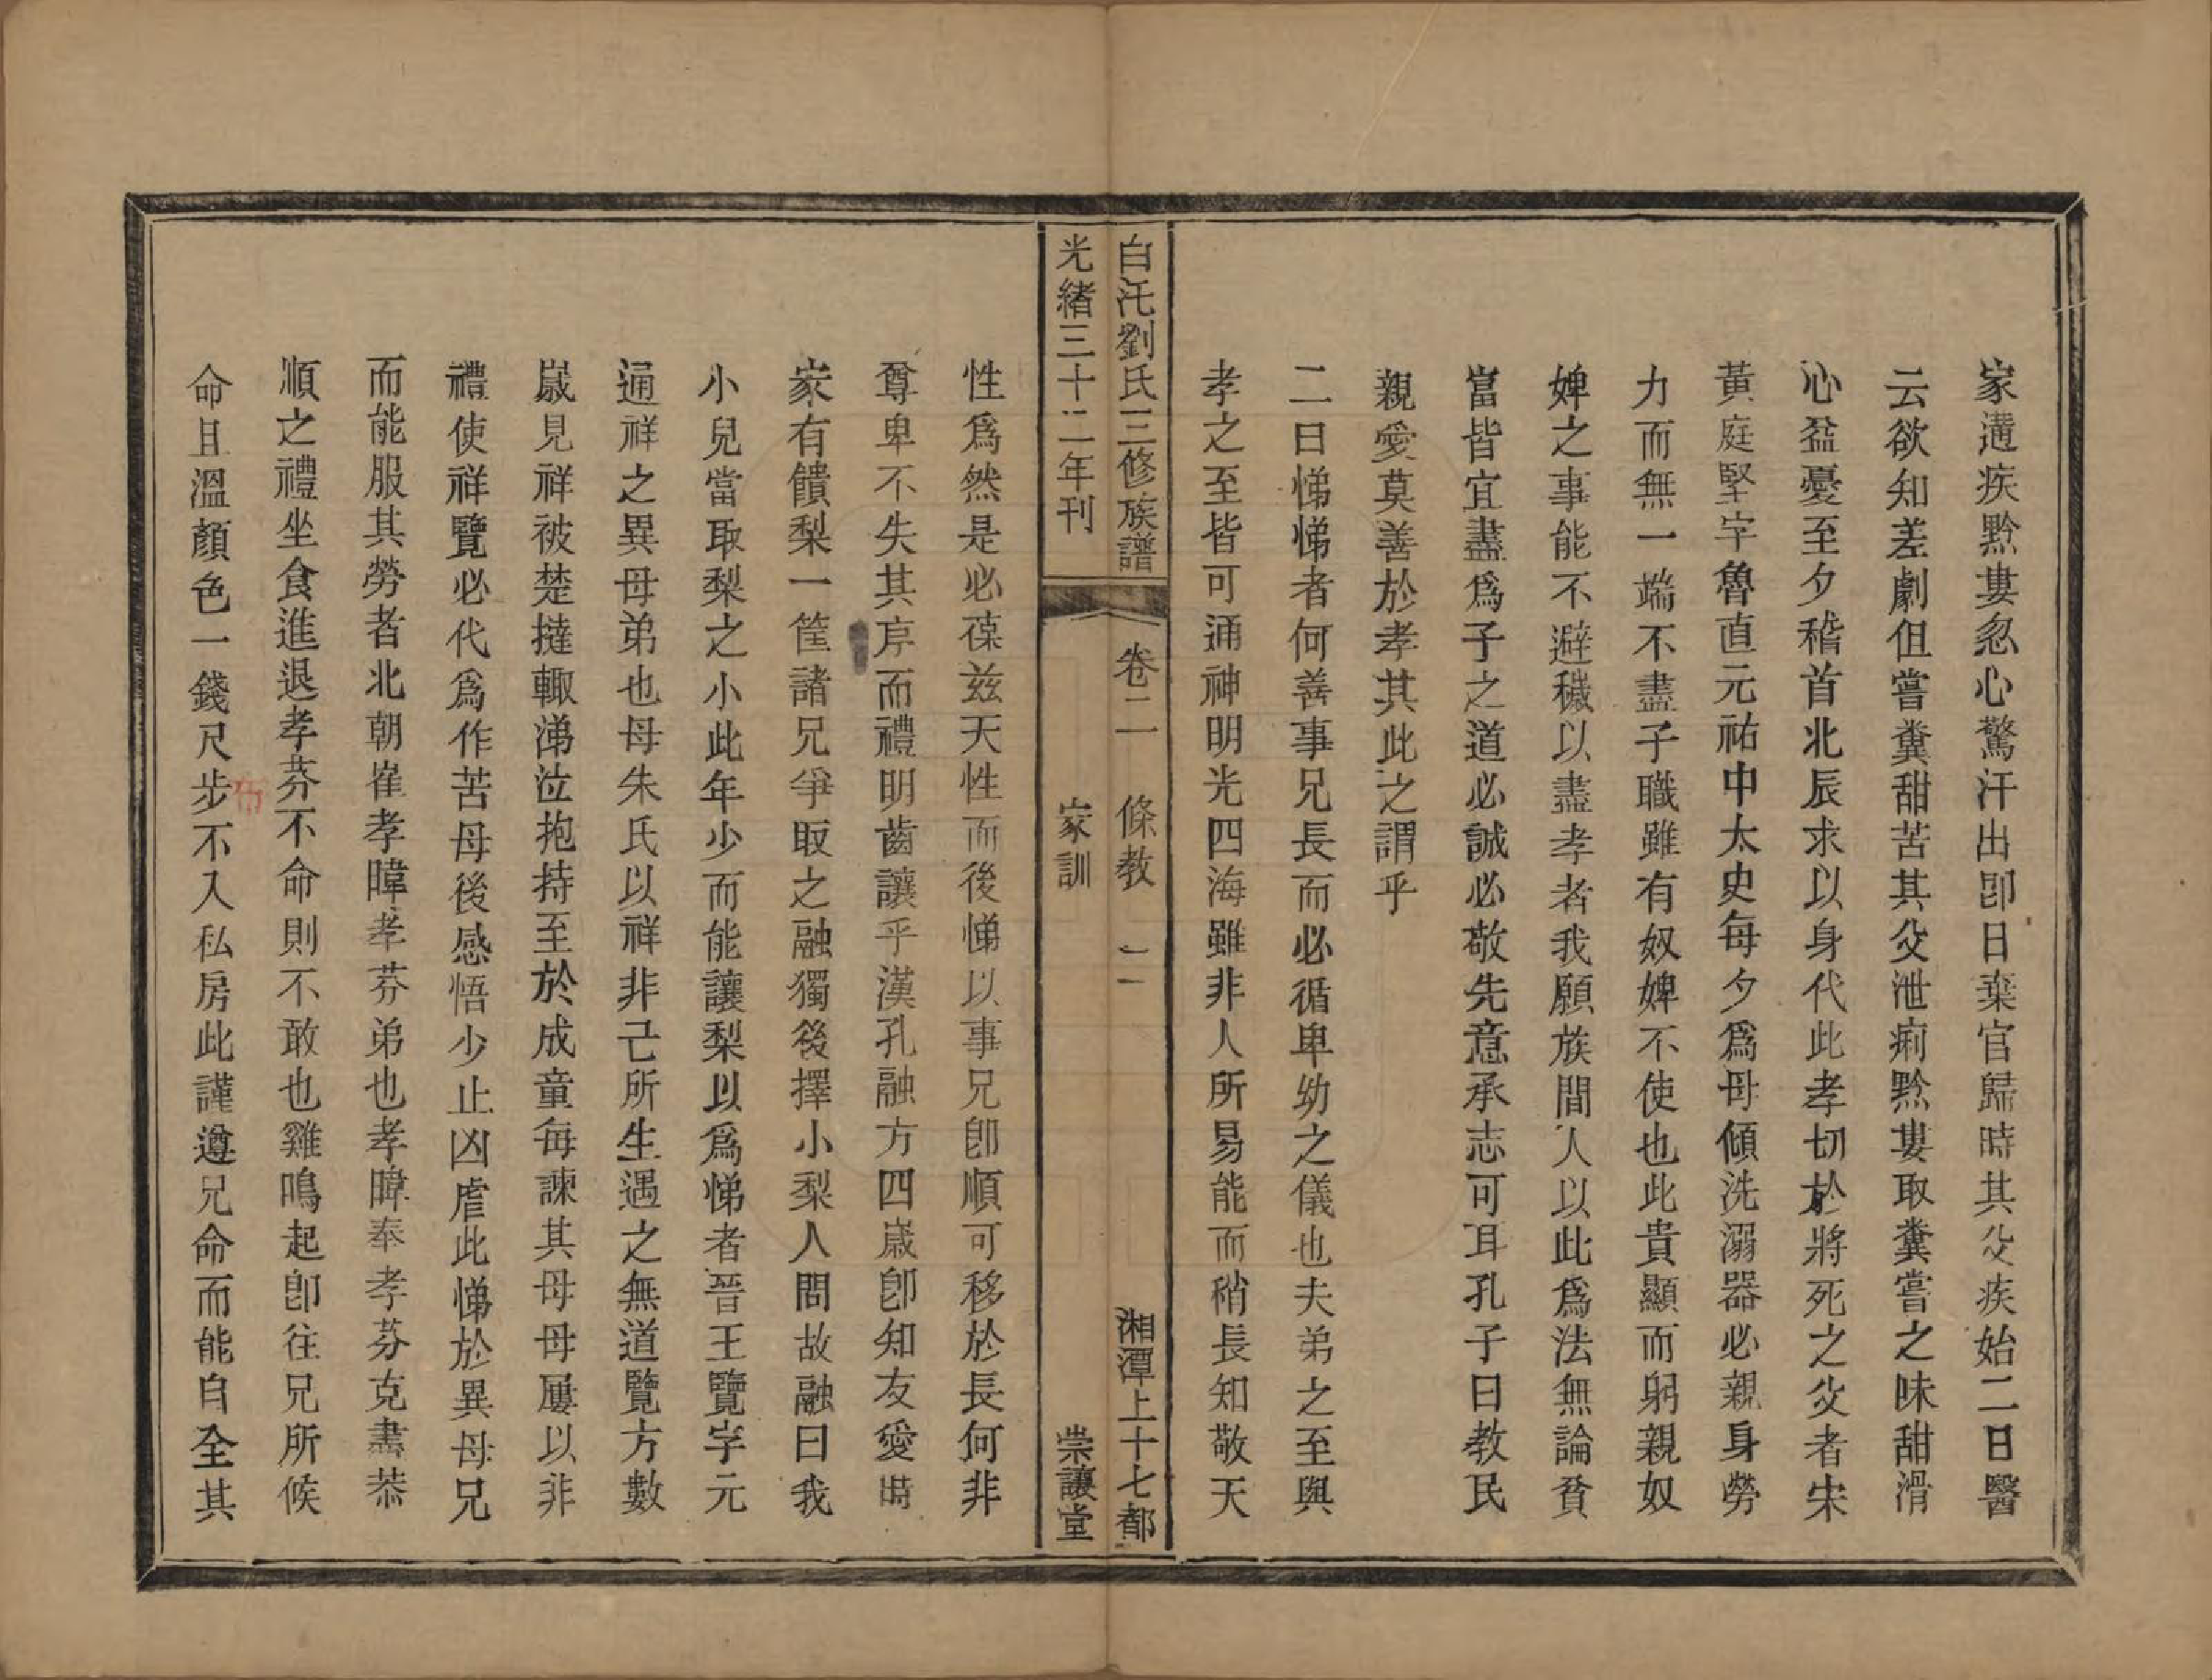 家遘疾黔婁忽心驚汗出卽日棄官歸時其父疾始二日醫
云欲知差劇但嘗糞甜苦其父泄痢黔婁取糞嘗之味甜滑
心益憂至夕稽首北辰求以身代此孝切於將死之父者宋
黃庭堅字魯直元祐中太史每夕爲母傾洗溺器必親身勞
力而無一端不盡子職雖有奴婢不使也此貴顯而躬親奴
婢之事能不避穢以盡孝者我願族間人以此爲法無論貧
富皆宜盡爲子之道必誠必敬先意承志可耳孔子曰教民
親愛莫善於孝其此之謂乎
二曰悌悌者何善事兄長而必循卑幼之儀也夫弟之至與
孝之至皆可通神明光四海雖非人所易能而稍長知敬天
白汑劉氏三修族譜 卷二 條教 二 湘潭上十七都
光緒三十二年刊 家訓 崇讓堂
性爲然是必葆兹天性而後悌以事兄卽順可移於長何非
尊卑不失其序而禮明齒讓乎漢孔融方四歲卽知友愛時
家有饋梨一筐諸兄爭取之融獨後擇小梨人問故融曰我
小兒當取梨之小此年少而能讓梨以爲悌者晉王覽字元
通祥之異母弟也母朱氏以祥非己所生遇之無道覽方數
歲見祥被楚撻輙涕泣抱持至於成童每諫其母母屢以非
禮使祥覽必代爲作苦母後感悟少止凶虐此悌於異母兄
而能服其勞者北朝崔孝暐孝芬弟也孝暐奉孝芬克盡恭
順之禮坐食進退孝芬不命則不敢也雞鳴起卽往兄所候
命且溫顏色一錢尺步不入私房此謹遵兄命而能自全其